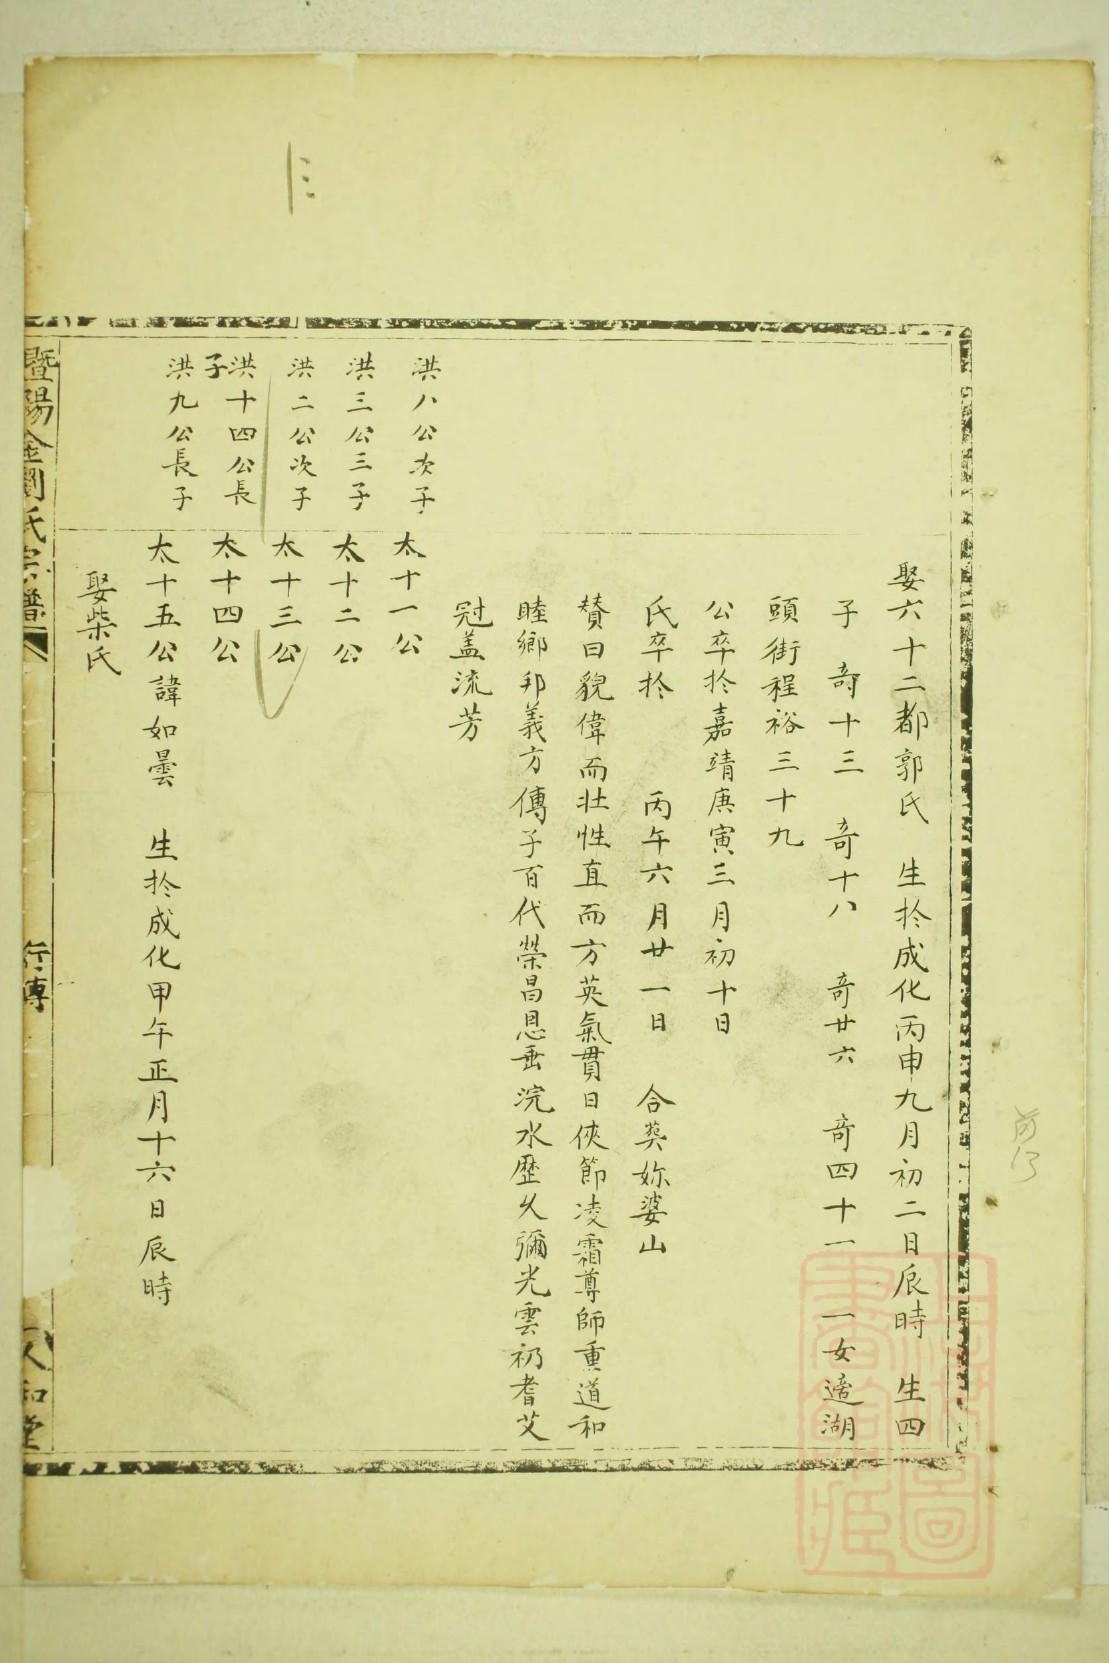 娶六十二都郭氏　生於成化丙申九月初二日辰時　生四
子　奇十三　奇十八　奇廿六　奇四十一　一女適湖
頭街程裕三十九
公卒於嘉靖庚寅三月初十日
氏卒於　丙午六月廿一日　合葬妳婆山
賛曰貌偉而壯性直而方英氣貫日俠節凌霜尊師重道和
睦鄉邦義方傳子百代榮昌恩垂浣水歷久彌光雲礽耆艾
冠盖流芳
洪八公次子　太十一公
洪三公三子　太十二公
洪二公次子　太十三公
洪十四公長子　太十四公
洪九公長子　太十五公諱如曇　生於成化甲午正月十六日辰時
娶柴氏
暨陽金劉氏宗譜　行傳